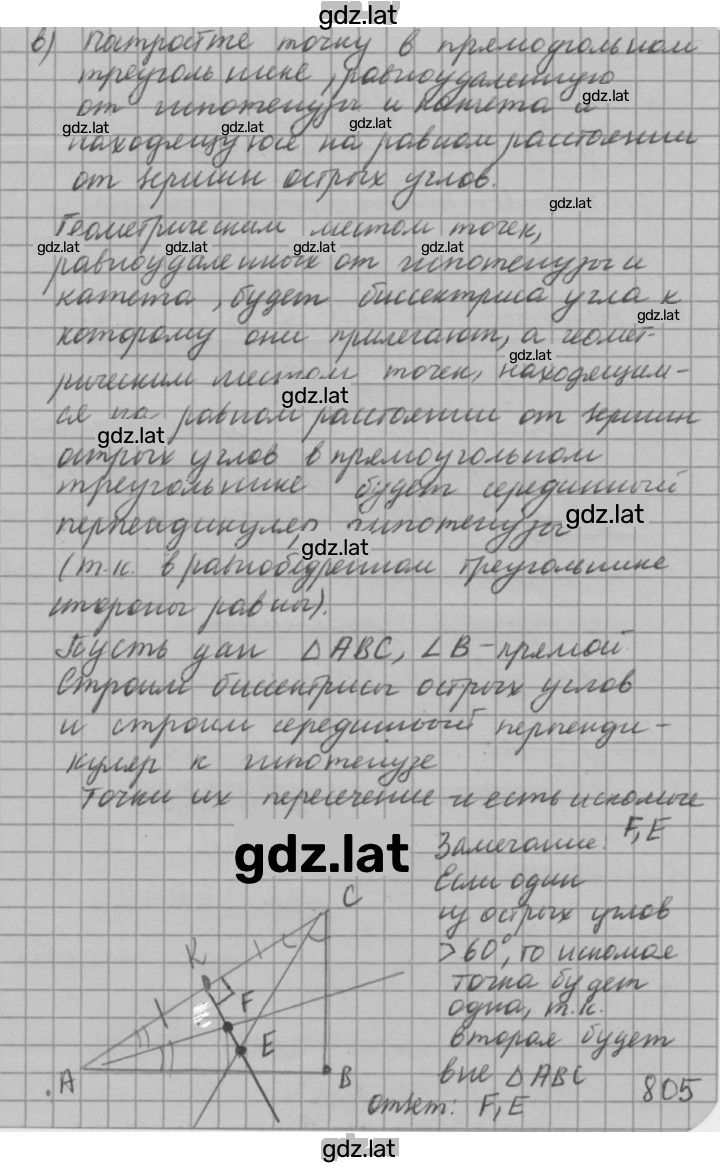 gdz.lat
в) Постройте точку в прямоугольном
треугольнике, равноудаленную
от гипотенузы и катета и
gdz.lat
gdz.lat gdz.lat gdz.lat
находящуюся на равном расстоянии
от вершин острых углов.
gdz.lat
Геометрическим местом точек,
gdz.lat gdz.lat gdz.lat gdz.lat
равноудаленных от гипотенузы и
катета, будет биссектриса угла к
gdz.lat
которому они прилегают, а геомет-
gdz.lat
рическим местом точек, находящим-
gdz.lat
ся на равном расстоянии от вершин
gdz.lat
острых углов в прямоугольном
треугольнике будет серединный
gdz.lat
перпендикуляр гипотенузы
gdz.lat
(т.к. в равнобедренном треугольнике
стороны равны).
Пусть дан △ABC, ∠B - прямой
Строим биссектрисы острых углов
и строим серединный перпенди-
куляр к гипотенузе
Точки их пересечение и есть искомые
F, E
gdz.lat
Замечание:
Если один
из острых углов
>60°, то искомая
точка будет
одна, т.к.
вторая будет
вне △ABC
C
K
F
E
A
B
805
ответ: F, E
gdz.lat